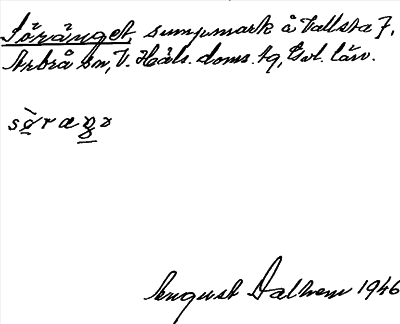 Söränget, sumpmark å Vallsta 7,
Arbrå sn, V. Häls. doms. tg, Gvl. län.
sø̀raŋə
August Dalhem 1946